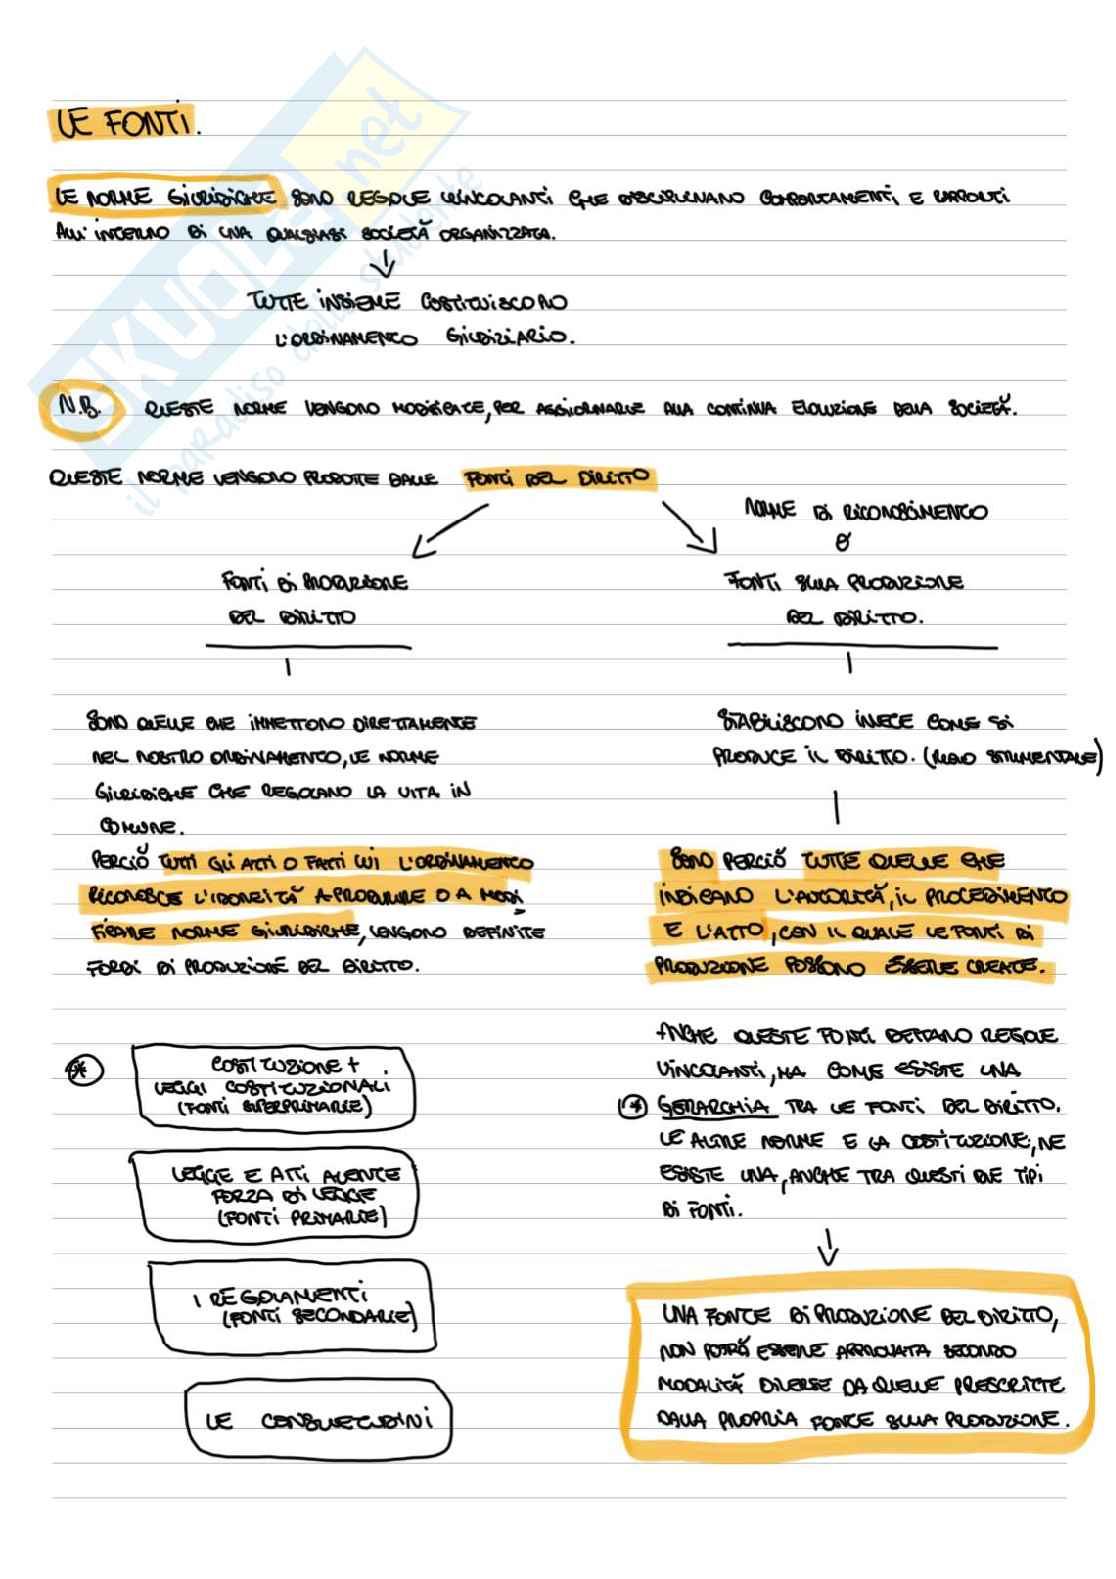 LE FONTI.
LE NORME GIURIDICHE SONO REGOLE VINCOLANTI CHE DISCIPLINANO COMPORTAMENTI, E RAPPORTI
ALL'INTERNO DI UNA QUALSIASI SOCIETÀ ORGANIZZATA.
TUTTE INSIEME COSTITUISCONO
L'ORDINAMENTO GIUDIZIARIO.
N.B. QUESTE NORME VENGONO MODIFICATE, PER AGGIORNARLE ALLA CONTINUA EVOLUZIONE DELLA SOCIETÀ.
QUESTE NORME VENGONO PRODOTTE DALLE FONTI DEL DIRITTO
NORME DI RICONOSCIMENTO
O
FONTI DI PRODUZIONE
DEL DIRITTO
FONTI SULLA PRODUZIONE
DEL DIRITTO.
SONO QUELLE CHE IMMETTONO DIRETTAMENTE
NEL NOSTRO ORDINAMENTO, LE NORME
GIURIDICHE CHE REGOLANO LA VITA IN
COMUNE.
PERCIÒ TUTTI GLI ATTI O FATTI CUI L'ORDINAMENTO
RICONOSCE L'IDONEITÀ A PRODURRE O A MODI
FICARE NORME GIURIDICHE, VENGONO DEFINITE
FONTI DI PRODUZIONE DEL DIRITTO.
STABILISCONO INVECE COME SI
PRODUCE IL DIRITTO. (RUOLO STRUMENTALE)
SONO PERCIÒ TUTTE QUELLE CHE
INDICANO L'AUTORITÀ, IL PROCEDIMENTO
E L'ATTO, CON IL QUALE LE FONTI DI
PRODUZIONE POSSONO ESSERE CREATE.
ANCHE QUESTE FONTI DETTANO REGOLE
VINCOLANTI, MA COME ESISTE UNA
* GERARCHIA TRA LE FONTI DEL DIRITTO.
LE ALTRE NORME E LA COSTITUZIONE, NE
ESISTE UNA, ANCHE TRA QUESTI DUE TIPI
DI FONTI.
UNA FONTE DI PRODUZIONE DEL DIRITTO,
NON POTRÀ ESSERE APPROVATA SECONDO
MODALITÀ DIVERSE DA QUELLE PRESCRITTE
DALLA PROPRIA FONTE SULLA PRODUZIONE.
*
COSTITUZIONE +
LEGGI COSTITUZIONALI
(FONTI SUPERPRIMARIE)
LEGGE E ATTI AVENTE
FORZA DI LEGGE
(FONTI PRIMARIE)
I REGOLAMENTI
(FONTI SECONDARIE)
LE CONSUETUDINI
SKUOLA.net
il paradiso dello studente